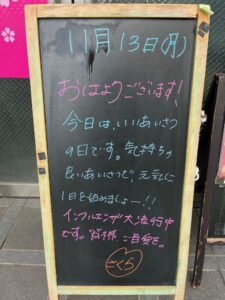 11月13日(月)
おはようございます!
今日は、いいあいさつ
の日です。気持ちの
良いあいさつで、元気に
1日を始めましょー!!
インフルエンザ大流行中
です。皆様ご自愛を。
さくら